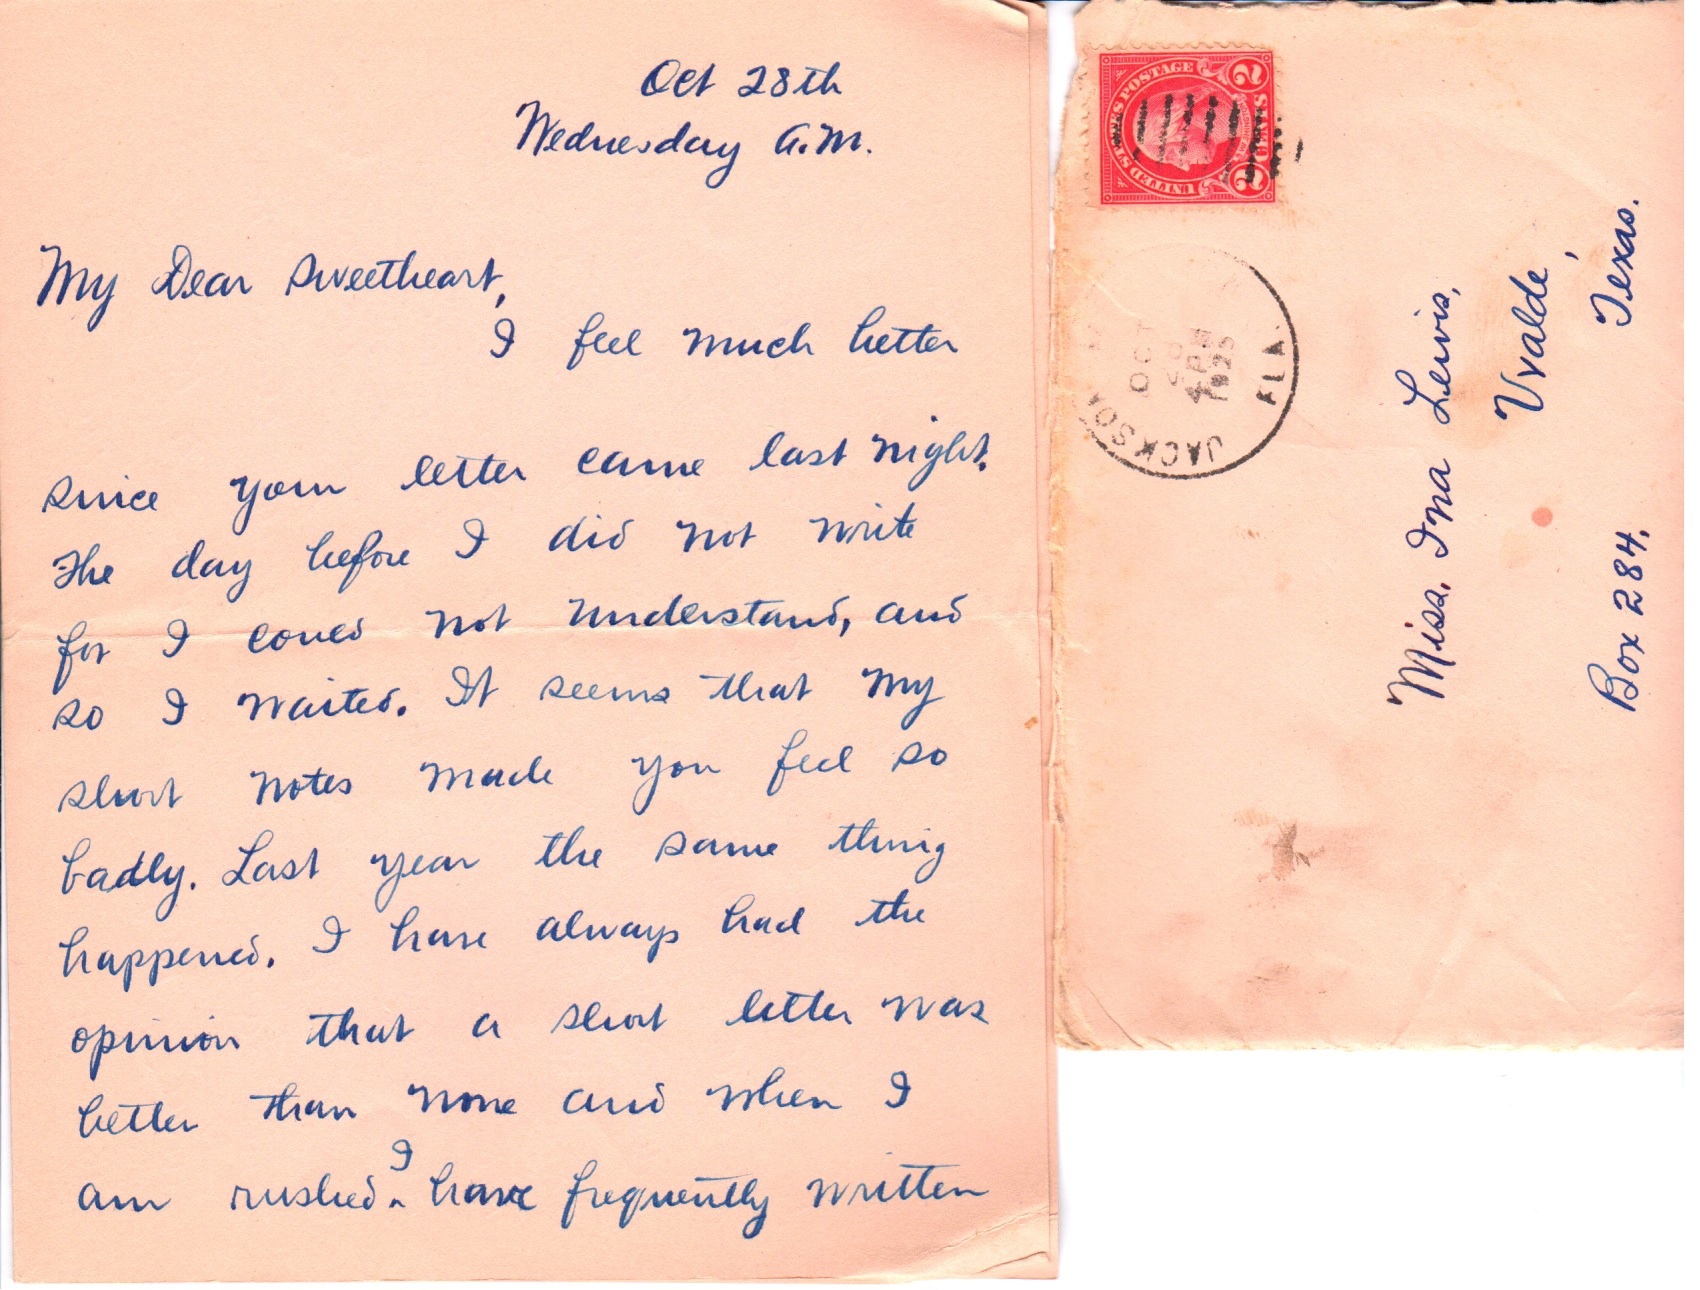 Oct 28th
Wednesday A.M.
My Dear Sweetheart,
I feel much better
since your letter came last night.
The day before I did not write
for I could not understand, and
so I waited. It seems that my
short notes made you feel so
badly. Last year the same thing
happened. I have always had the
opinion that a short letter was
better than none and when I
I
am rushed ^ have frequently written
UNITED STATES POSTAGE
2 CENTS 2
JACKSON
FLA.
OCT
1925
Miss. Ina Lewis,
Uvalde,
Box 284. Texas.